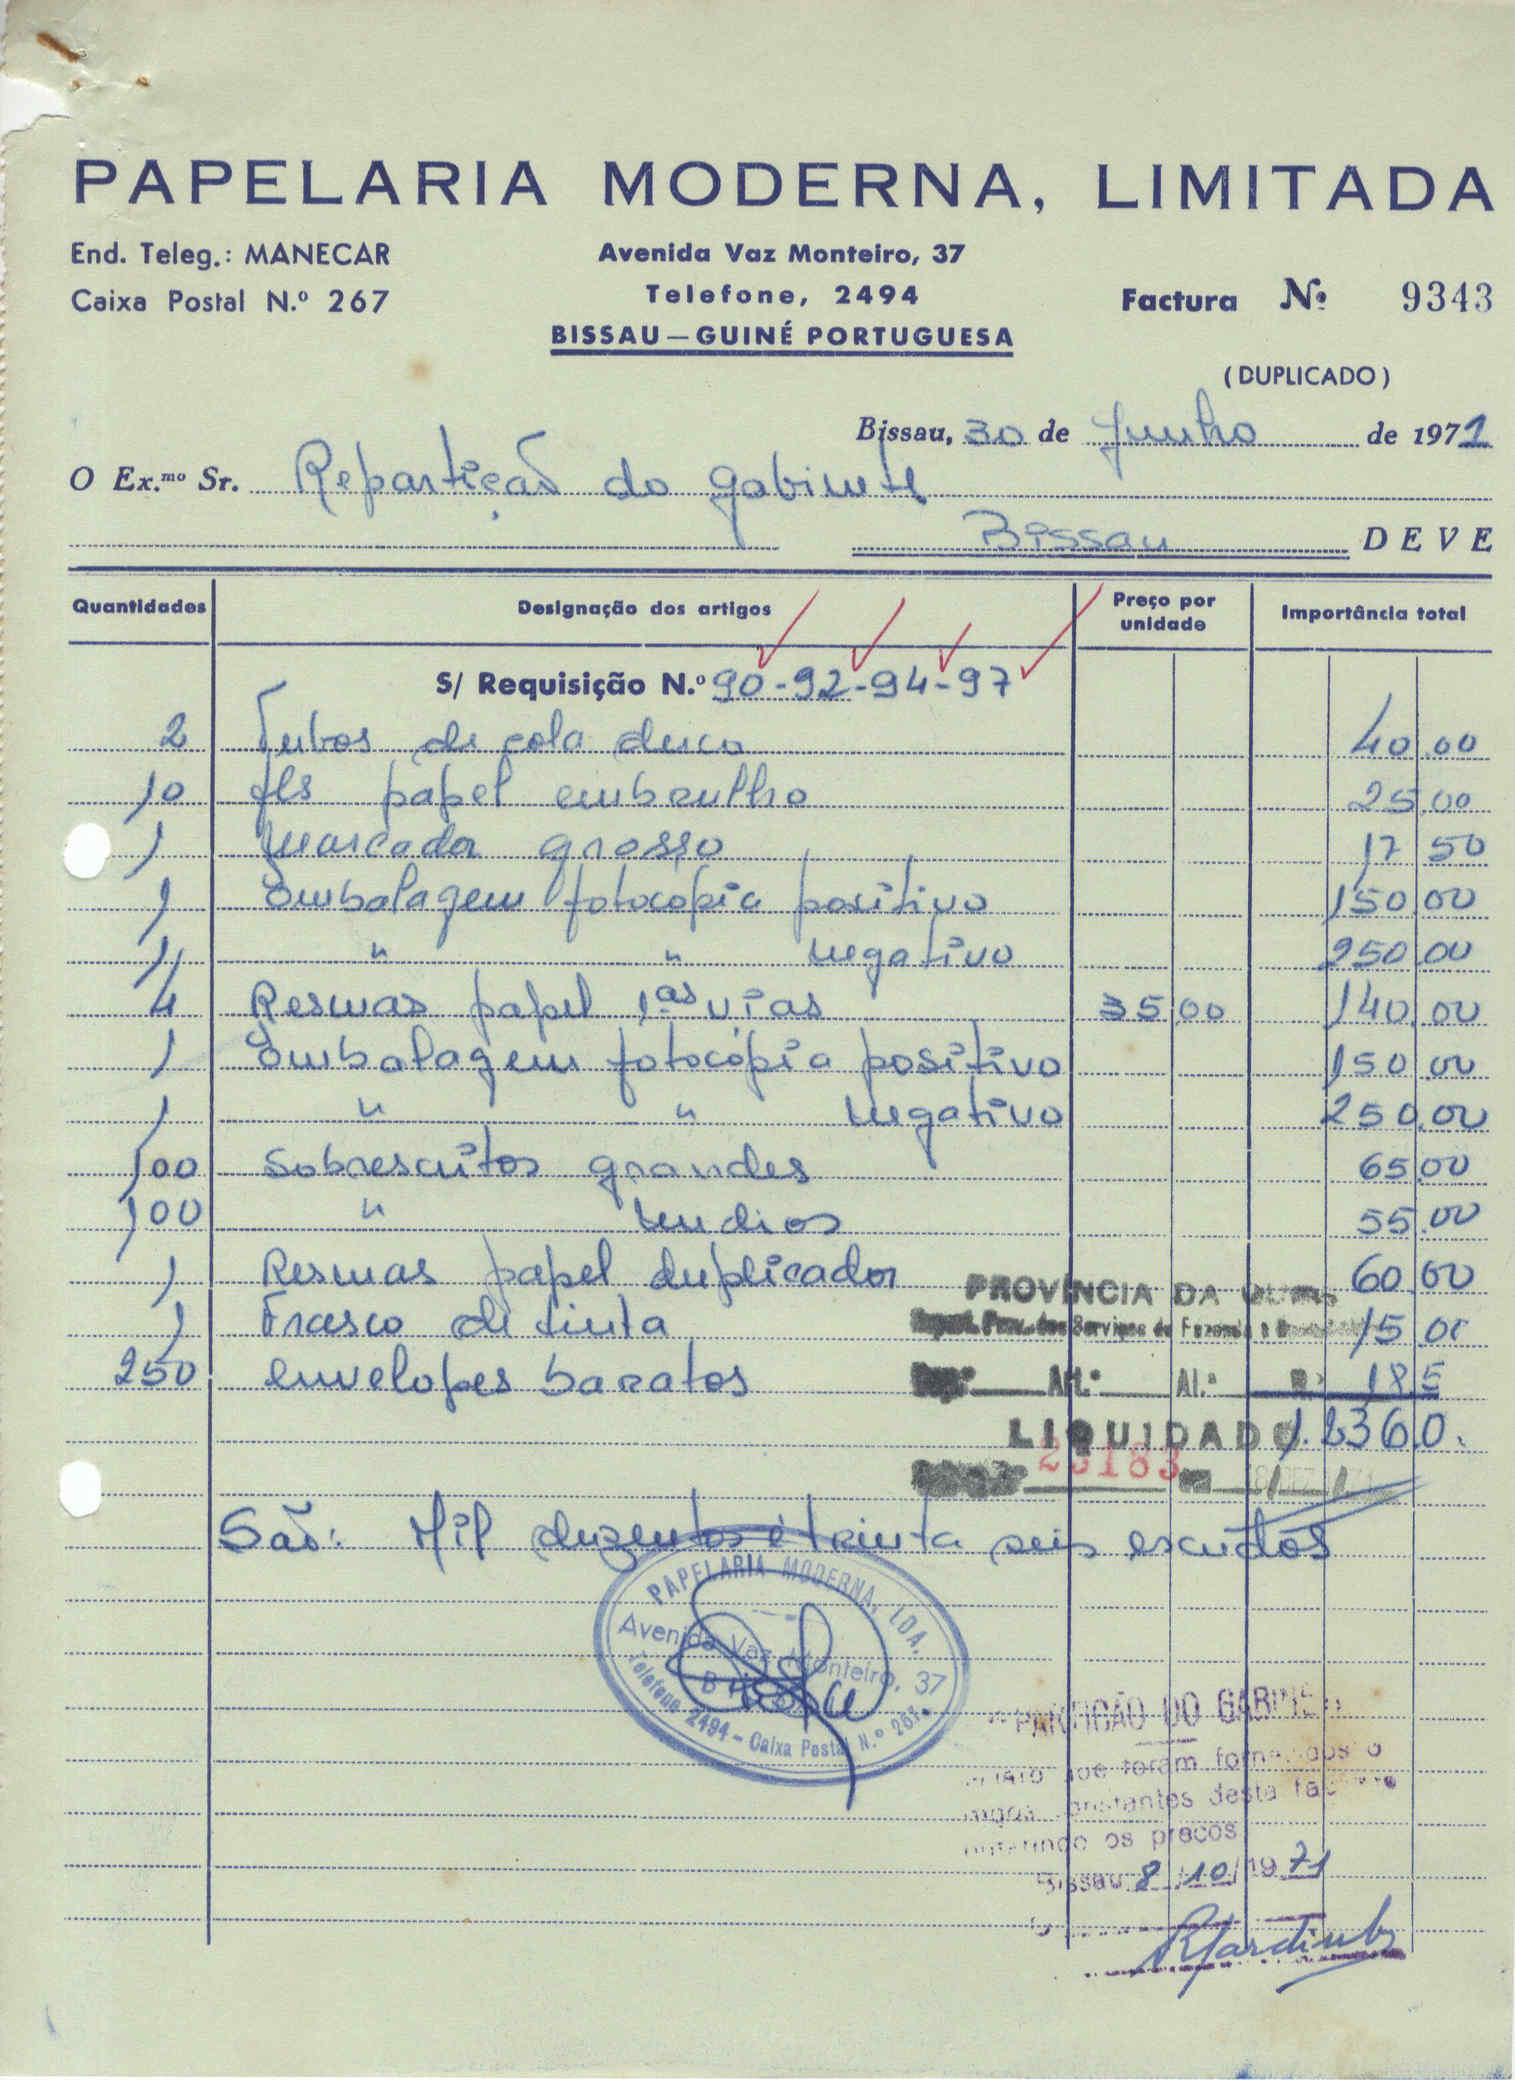 PAPELARIA MODERNA, LIMITADA
End. Teleg.: MANECAR
Caixa Postal N.º 267
Avenida Vaz Monteiro, 37
Telefone, 2494
BISSAU — GUINÉ PORTUGUESA
Factura Nº 9343
(DUPLICADO)
Bissau, 30 de Junho de 1971
O Ex.mo Sr. Repartição do gabinete
Bissau DEVE
Quantidades Designação dos artigos Preço por unidade Importância total
S/ Requisição N.º 90-92-94-97
2 Tubos de cola duco 40.00
10 fls papel embrulho 25.00
1 Marcador grosso 17 50
1 Embalagem fotocópia positivo 150.00
1 " " negativo 250.00
4 Resmas papel 1.as vias 35.00 140.00
1 Embalagem fotocópia positivo 150.00
1 " " negativo 250.00
100 Sobrescritos grandes 65.00
100 " medios 55.00
1 Resmas papel duplicador 60.00
1 Frasco de tinta 15.00
250 envelopes baratos 18.5
PROVÍNCIA DA
dos Serviços de Fazenda e
Art.º Al.ª
LIQUIDADO 1.236 0.
São: Mil duzentos e trinta seis escudos
PAPELARIA MODERNA, LDA.
Avenida Vaz Monteiro, 37
Telefone 2494 - Caixa Postal N.º 267
DO
que foram
constantes desta
os preços
Bissau 8/10/1971